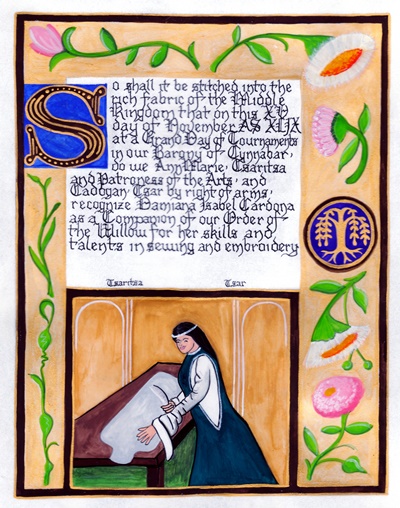 So shall it be stitched into the
rich fabric of the Middle
Kingdom that on this XV
day of November AS XLIX
at a Grand Day of Tournaments
in our Barony of Cynnabar,
do we AnnMarie, Tsaritsa
and Patroness of the Arts, and
Cadogan, Tsar by right of arms,
recognize Damiana Isabel Cardona
as a Companion of our Order of
the Willow for her skills and
talents in sewing and embroidery
Tsaritsa Tsar